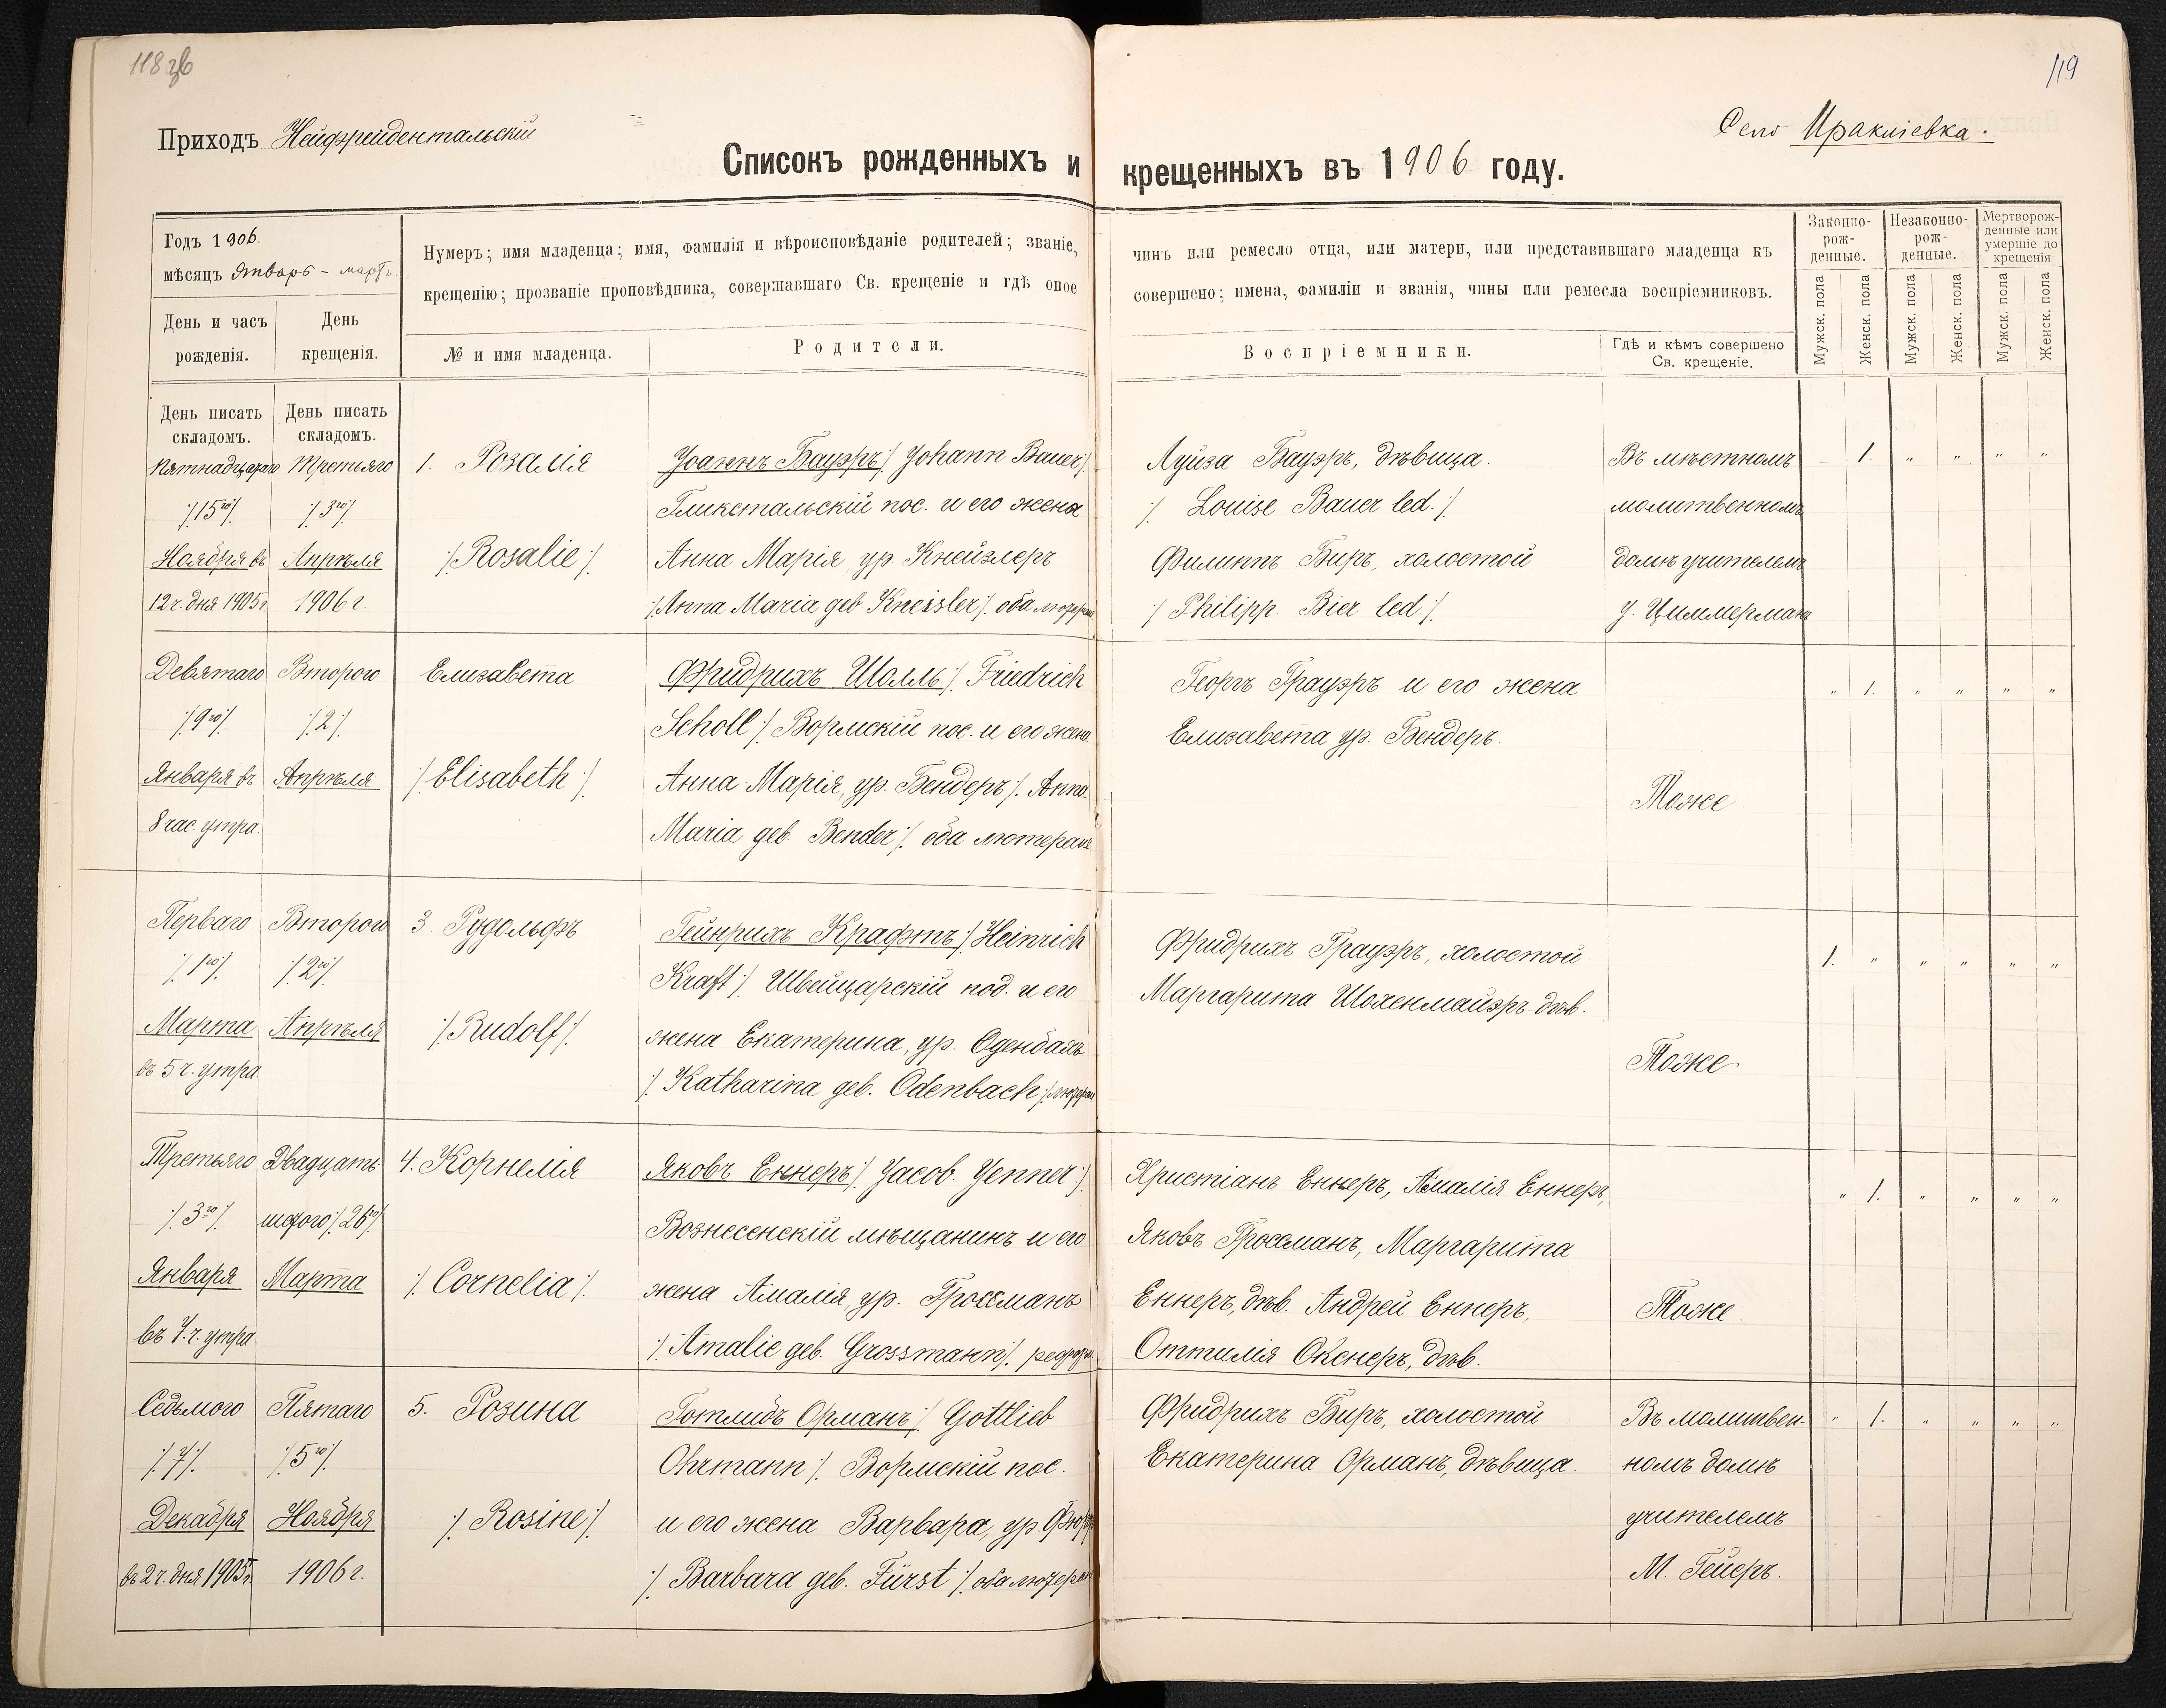 118 об
119
Приходъ Нейфрейдентальскій
Село Ираклiевка.
Списокъ рожденныхъ и крещенныхъ въ 1906 году.
Годъ 1906.
мѣсяцъ Январь - мартъ.
Нумеръ; имя младенца; имя, фамилія и вѣроисповѣданіе родителей; званіе, чинъ или ремесло отца, или матери, или представившаго младенца къ
крещенію; прозваніе проповѣдника, совершавшаго Св. крещеніе и гдѣ оное совершено; имена, фамиліи и званія, чины или ремесла воспріемниковъ.
Законно-
рож-
денные.
Незаконно-
рож-
денные.
Мертворож-
денные или
умершіе до
крещенія
День и часъ
рожденія.
День
крещенія.
№ и имя младенца.
Родители.
Воспріемники.
Гдѣ и кѣмъ совершено
Св. крещеніе.
Мужск. пола
Женск. пола
Мужск. пола
Женск. пола
Мужск. пола
Женск. пола
День писать
складомъ.
День писать
складомъ.
Пятнадцатаго
/.15го/.
Ноября въ
12 ч. дня 1905 г.
Третьяго
/.3го/.
Апрѣля
1906 г.
1. Розалія
/. Rosalie /.
Іоаннъ Бауэръ /. Johann Bauer /.
Гликстальскій пос. и его жена
Анна Марія, ур. Кнейзлеръ
/. Anna Maria geb. Kneisler /. оба лютеран
Луйза Бауэръ, дѣвица.
/. Louise Bauer led. /.
Филиппъ Биръ, холостой
/. Philipp Bier led. /.
Въ мѣстномъ
молитвенномъ
домѣ учителемъ
Циммерманъ
1. " " " "
Девятаго
/.9го/.
Января въ
8 час. утра
Второго
/.2/.
Апрѣля
Елизавета
/. Elisabeth /.
Фридрихъ Шолль /. Friedrich
Scholl /. Вормскій пос. и его жена
Анна Марія, ур. Бендеръ /. Anna
Maria geb. Bender /. оба лютеране
Георгъ Грауэръ и его жена
Елизавета ур. Бендеръ.
Тоже
" 1. " " " "
Перваго
/.1го/.
Марта
въ 5 ч. утра
Второго
/.2го/.
Апрѣля
3. Рудольфъ
/. Rudolf /.
Гейнрихъ Крафтъ /. Heinrich
Kraft /. Швейцарскій под. и его
жена Екатерина, ур. Оденбахъ
/. Katharina geb. Odenbach /.
Фридрихъ Грауэръ, холостой
Маргарита Шохенмайэръ дѣв.
Тоже
1. " " " " "
Третьяго
/.3го/.
Января
въ 7 ч. утра
Двадцать
шестого /.26го/.
Марта
4. Корнелія
/. Cornelia /.
Яковъ Еннеръ /. Jacob Jenner /.
Вознесенскій мѣщанинъ и его
жена Амалія, ур. Гроссманъ
/. Amalie geb. Grossmann /. реформ.
Христіанъ Еннеръ, Амалія Еннеръ,
Яковъ Гроссманъ, Маргарита
Еннеръ, дѣв. Андрей Еннеръ,
Оттилія Окснеръ, дѣв.
Тоже.
" 1. " " " "
Седьмого
/.7/.
Декабря
въ 2 ч. дня 1905 г.
Пятаго
/.5го/.
Ноября
1906 г.
5. Розина
/. Rosine /.
Готлибъ Орманъ /. Gottlieb
Ohrmann /. Вормскій пос.
и его жена Варвара, ур.
/. Barbara geb. Fürst /. оба лютеран
Фридрихъ Биръ, холостой
Екатерина Орманъ, дѣвица.
Въ молитвен-
номъ домѣ
учителемъ
М. Гейеръ.
" 1. " " " "